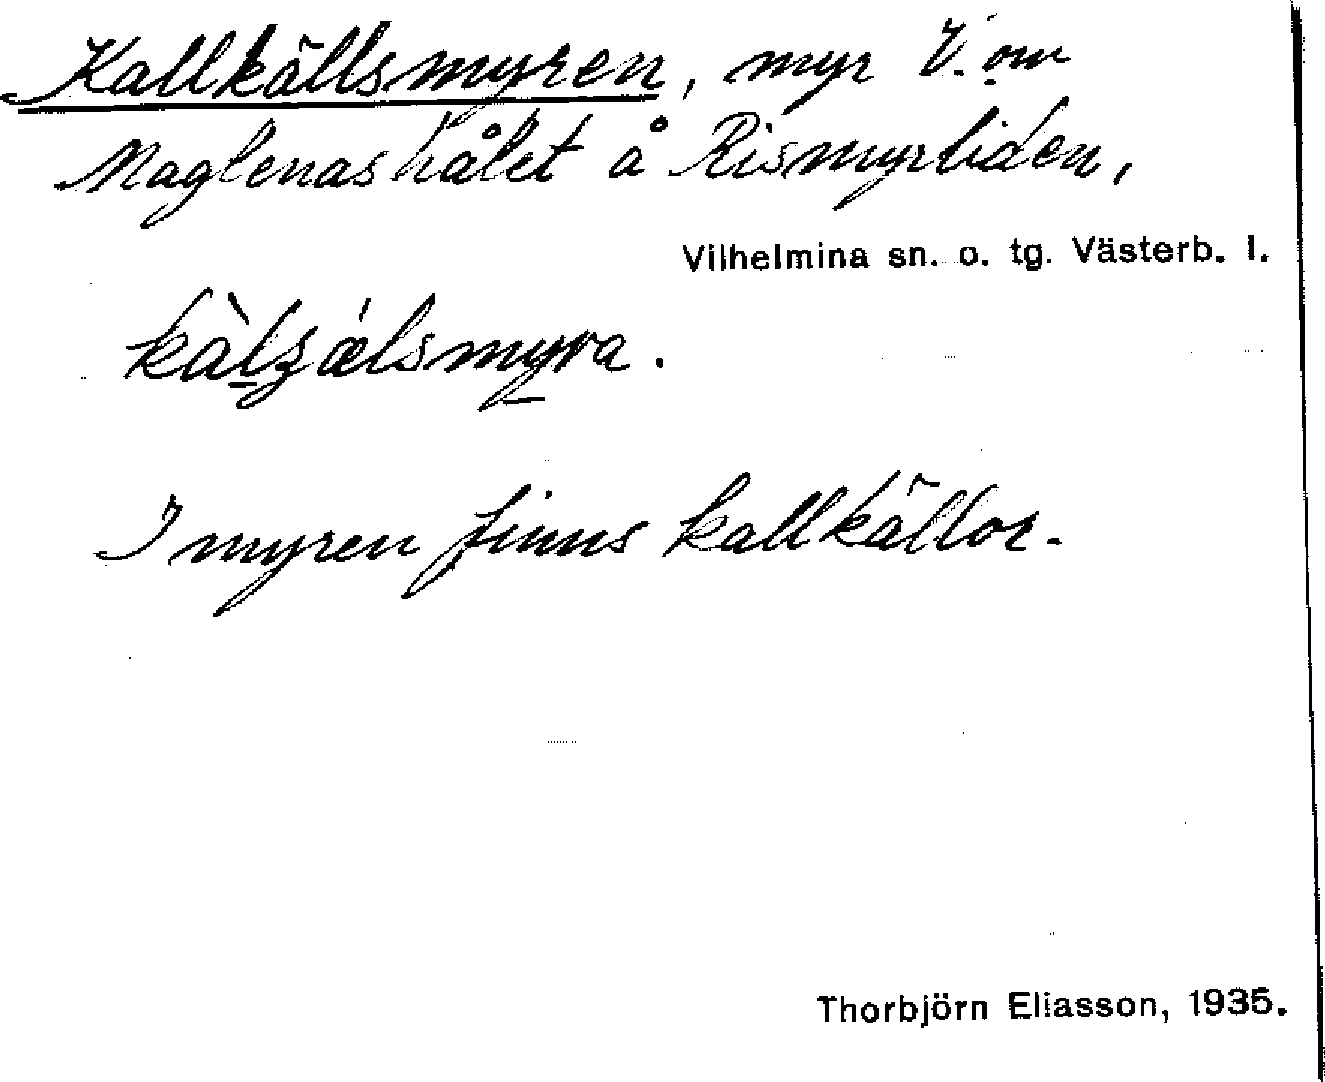 Kallkällsmyren, myr V. om
Maglenashålet å Rismyrliden,
Vilhelmina sn. o. tg. Västerb. l.
I myren finns kallkällor.
Thorbjörn Eliasson, 1935.